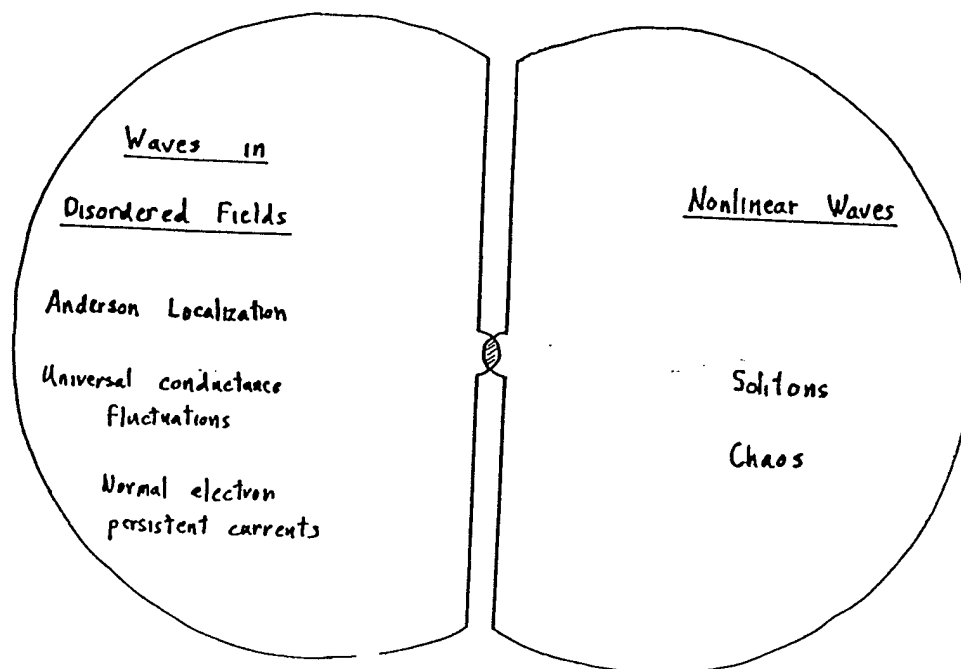 Waves in
Disordered Fields
Anderson Localization
Universal conductance
fluctuations
Normal electron
persistent currents
Nonlinear Waves
Solitons
Chaos